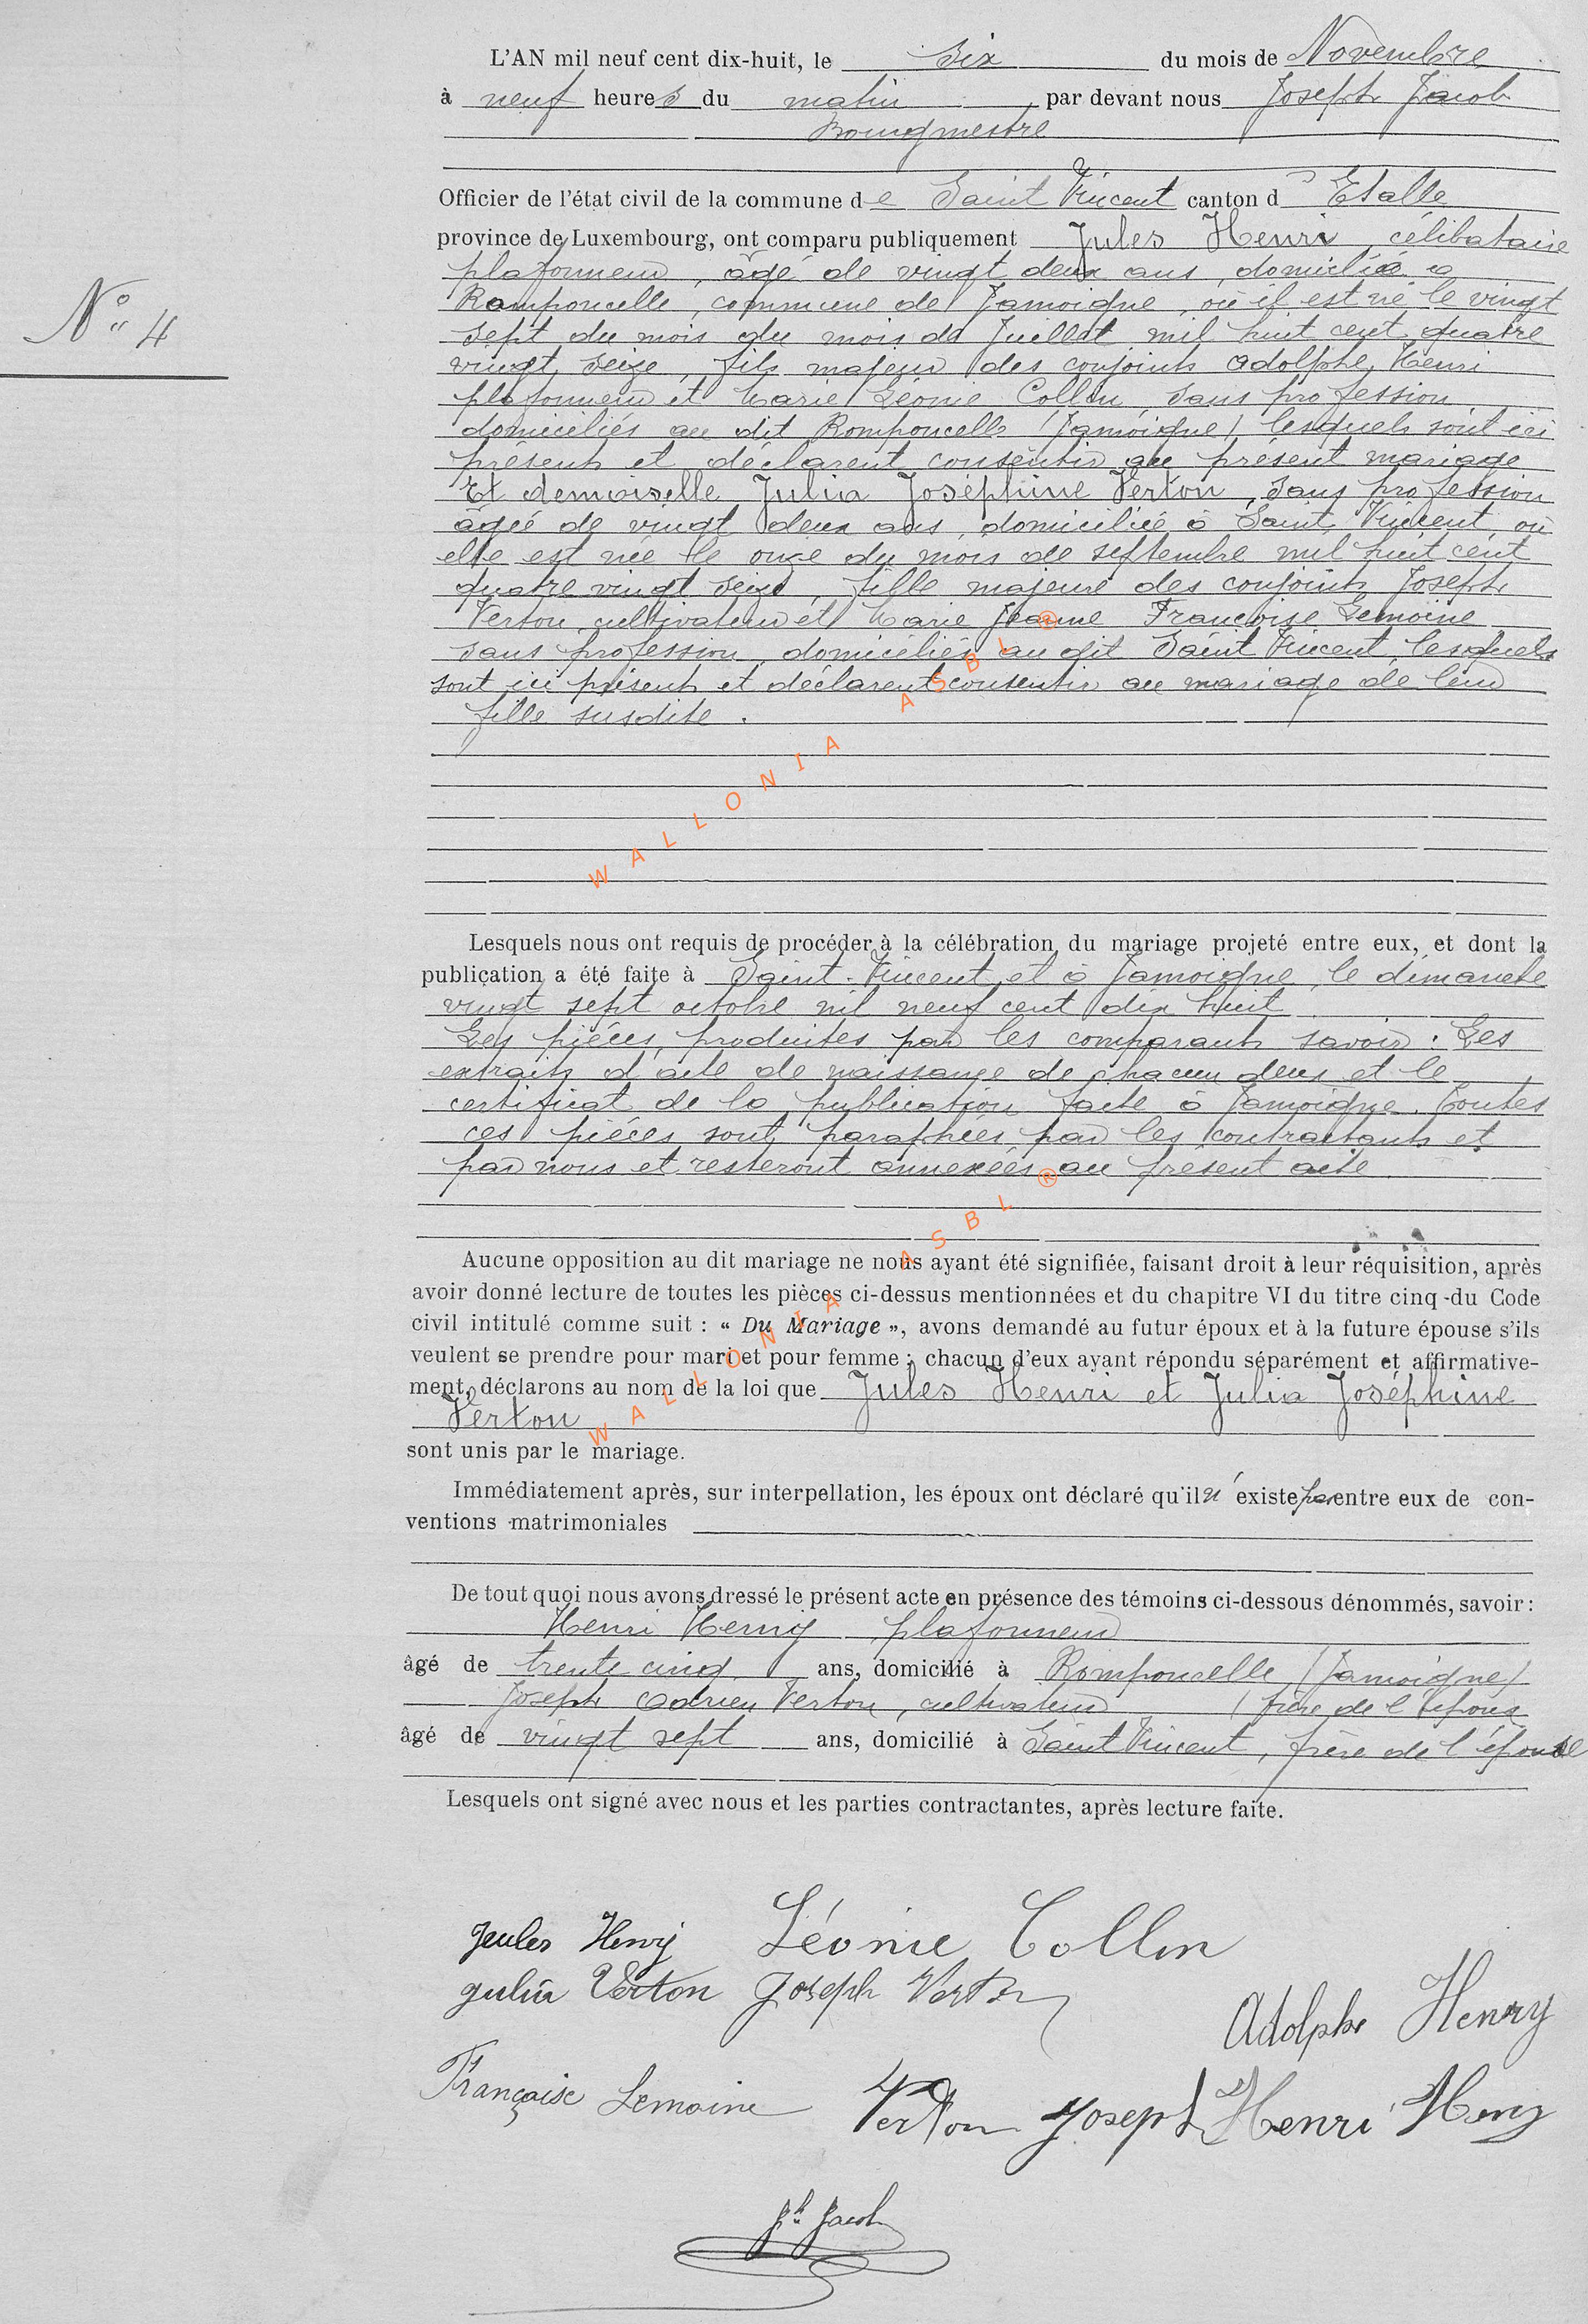 L'AN mil neuf cent dix-huit, le six du mois de Novembre
à neuf heures du matin par devant nous Joseph Jacob
Bourgmestre
Officier de l'état civil de la commune de Saint Vincent canton d' Etalle
province de Luxembourg, ont comparu publiquement Jules Henri, célibataire
plafonneur, âgé de vingt deux ans, domicilié à
Romponcelle, commune de Jamoigne, où il est né le vingt
N° 4
sept du mois du mois de Juillet mil huit cent quatre
vingt seize, fils majeur des conjoints Adolphe Henri
plafonneur et Marie Léonie Collin, sans profession,
domiciliés au dit Romponcelle (Jamoigne) lesquels sont ici
présents et déclarent consentir au présent mariage
Et demoiselle Julia Joséphine Verton, sans profession
âgée de vingt deux ans, domiciliée à Saint Vincent, où
elle est née le onze du mois de septembre mil huit cent
quatre vingt seize, fille majeure des conjoints Joseph
Verton, cultivateur et Marie Jeanne Françoise Lemoine
sans profession, domiciliés au dit Saint Vincent, lesquels
sont ici présents et déclarent consentir au mariage de leur
fille susdite.
WALLONIA ASBL ®
Lesquels nous ont requis de procéder à la célébration du mariage projeté entre eux, et dont la
publication a été faite à Saint-Vincent et à Jamoigne, le dimanche
vingt sept octobre mil neuf cent dix huit
Les pièces, produites par les comparants savoir : Les
extraits d'acte de naissance de chacun deux et le
certificat de la publication faite à Jamoigne. Toutes
ces pièces sont paraphées par les contractants et
par nous et resteront annexées au présent acte.
WALLONIA ASBL ®
Aucune opposition au dit mariage ne nous ayant été signifiée, faisant droit à leur réquisition, après
avoir donné lecture de toutes les pièces ci-dessus mentionnées et du chapitre VI du titre cinq du Code
civil intitulé comme suit : « Du Mariage », avons demandé au futur époux et à la future épouse s'ils
veulent se prendre pour mari et pour femme ; chacun d'eux ayant répondu séparément et affirmative-
ment, déclarons au nom de la loi que Jules Henri et Julia Joséphine
Verton
sont unis par le mariage.
Immédiatement après, sur interpellation, les époux ont déclaré qu'il n'existe pas entre eux de con-
ventions matrimoniales
De tout quoi nous avons dressé le présent acte en présence des témoins ci-dessous dénommés, savoir :
Henri Henry plafonneur
âgé de trente cinq ans, domicilié à Romponcelle (Jamoigne)
Joseph Adrien Verton, cultivateur (frère de l'époux
âgé de vingt sept ans, domicilié à Saint Vincent, frère de l'épouse
Lesquels ont signé avec nous et les parties contractantes, après lecture faite.
Jules Henry Léonie Collin
Julia Verton Joseph Verton
Adolphe Henry
Françoise Lemoine Verton Joseph Henri Henry
Jh Jacob